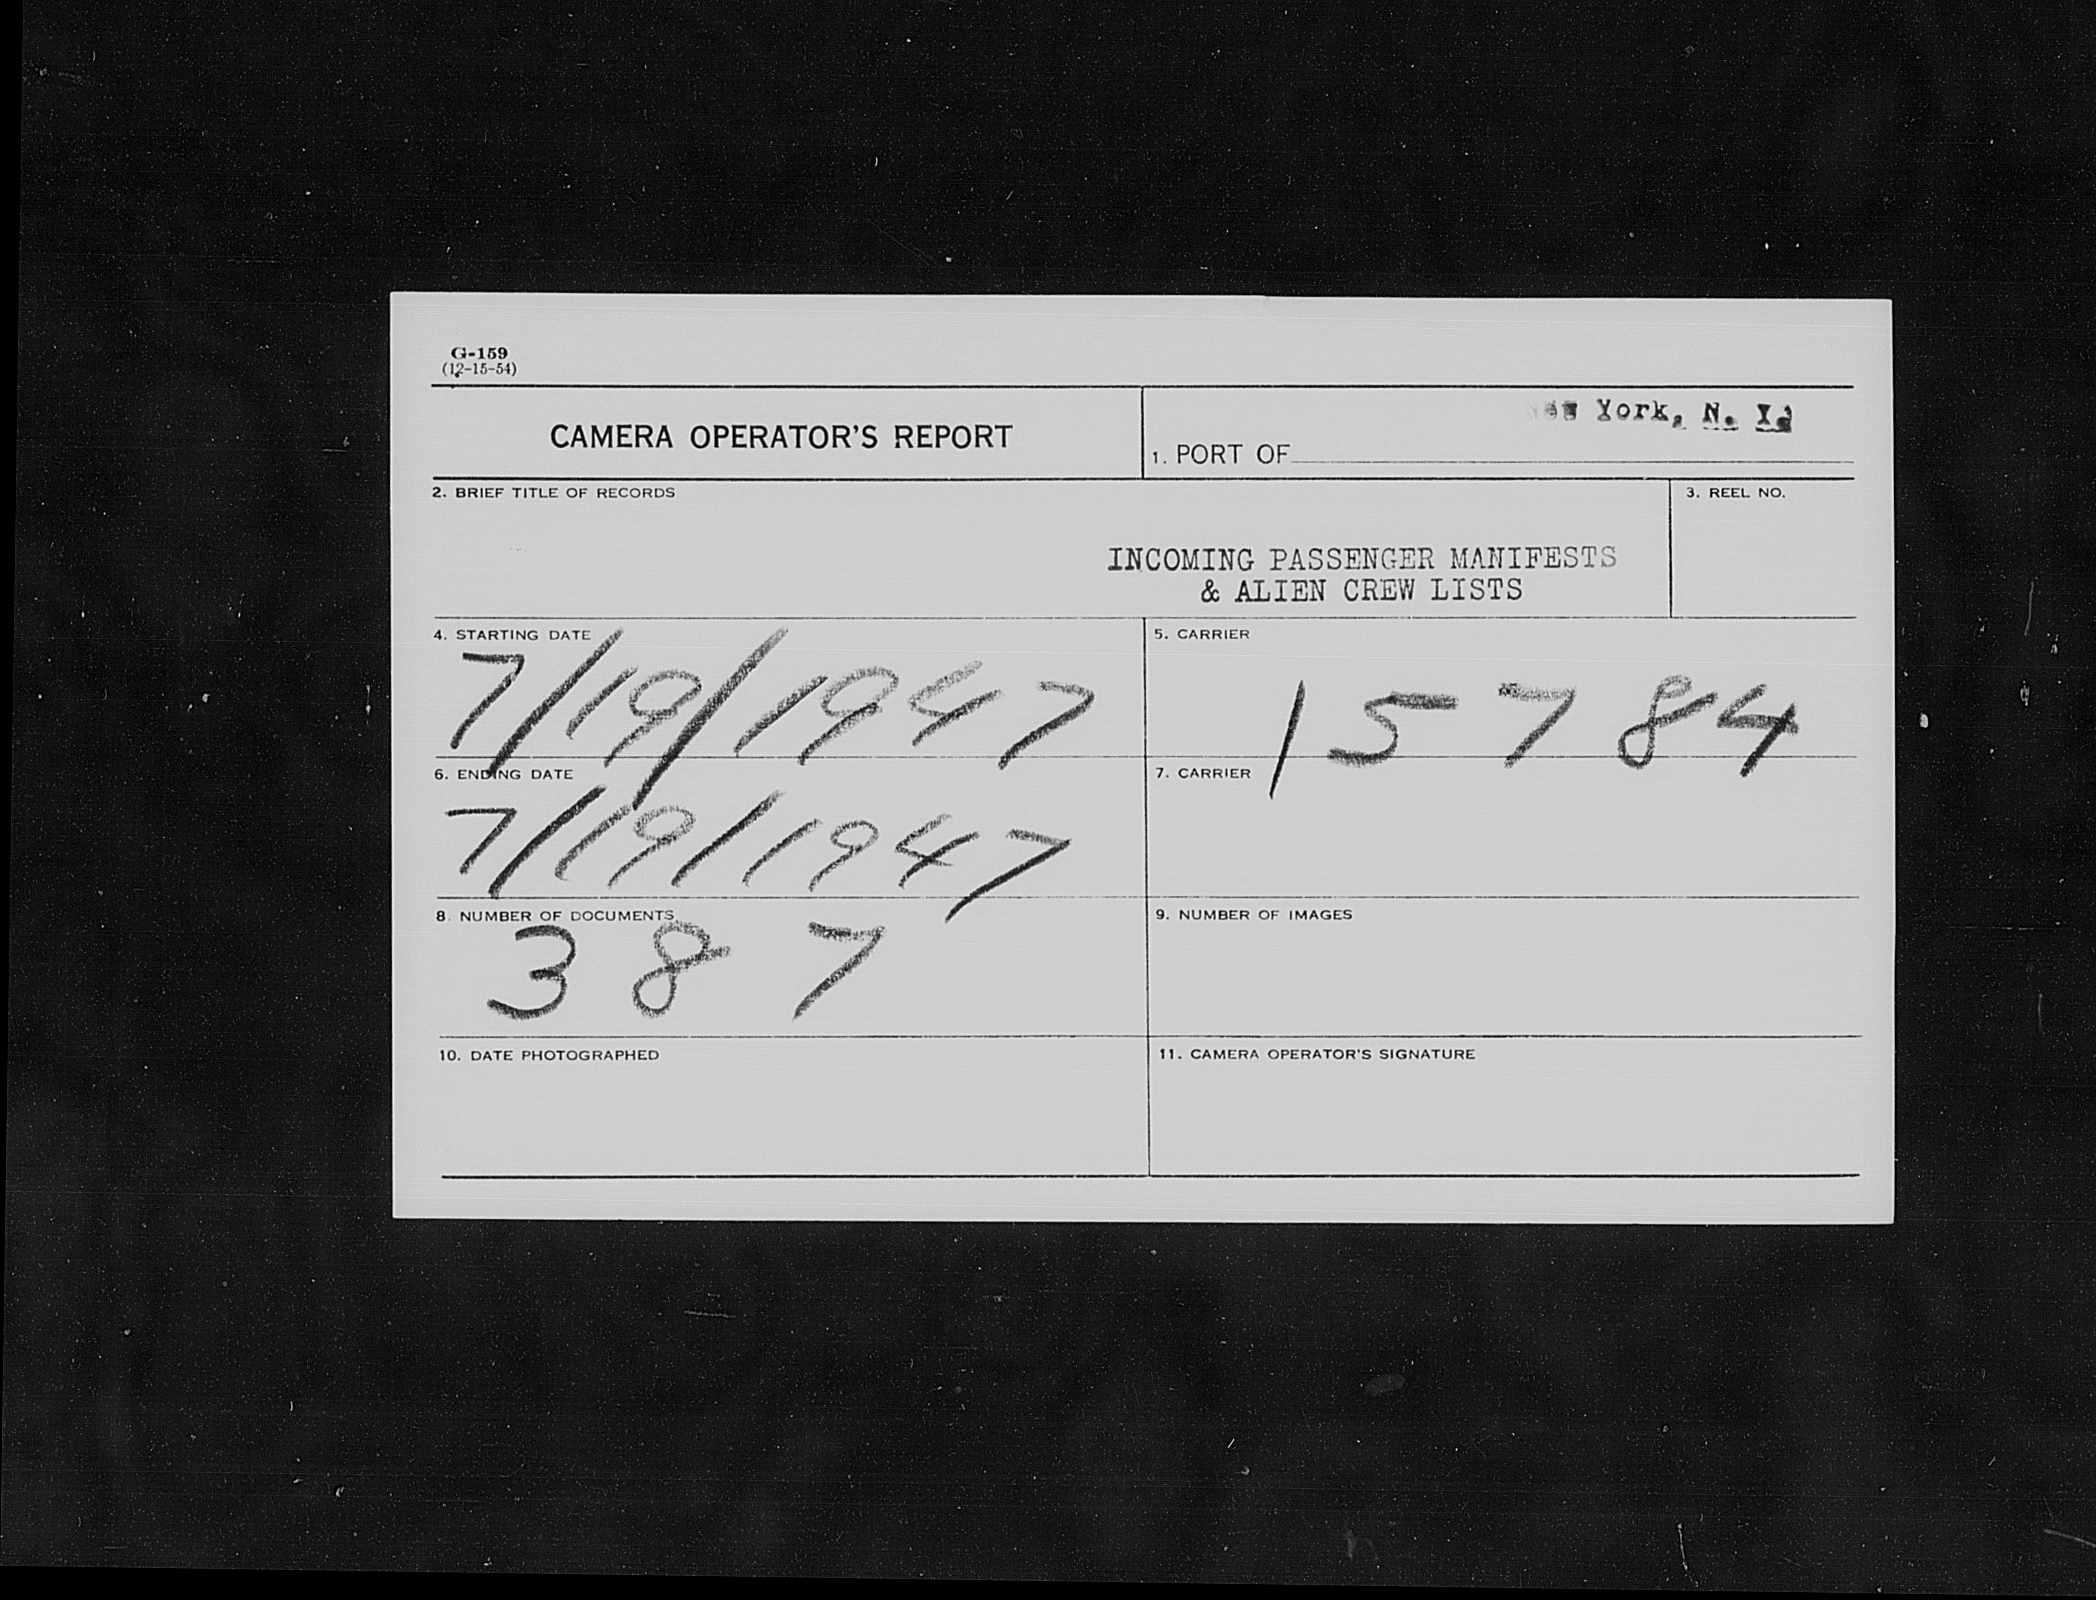 G-159
(12-15-54)
CAMERA OPERATOR'S REPORT
New York, N. Y.
1. PORT OF
2. BRIEF TITLE OF RECORDS
3. REEL NO.
INCOMING PASSENGER MANIFESTS
& ALIEN CREW LISTS
4. STARTING DATE
7/19/1947
5. CARRIER
15784
6. ENDING DATE
7/19/1947
7. CARRIER
8. NUMBER OF DOCUMENTS
387
9. NUMBER OF IMAGES
10. DATE PHOTOGRAPHED
11. CAMERA OPERATOR'S SIGNATURE